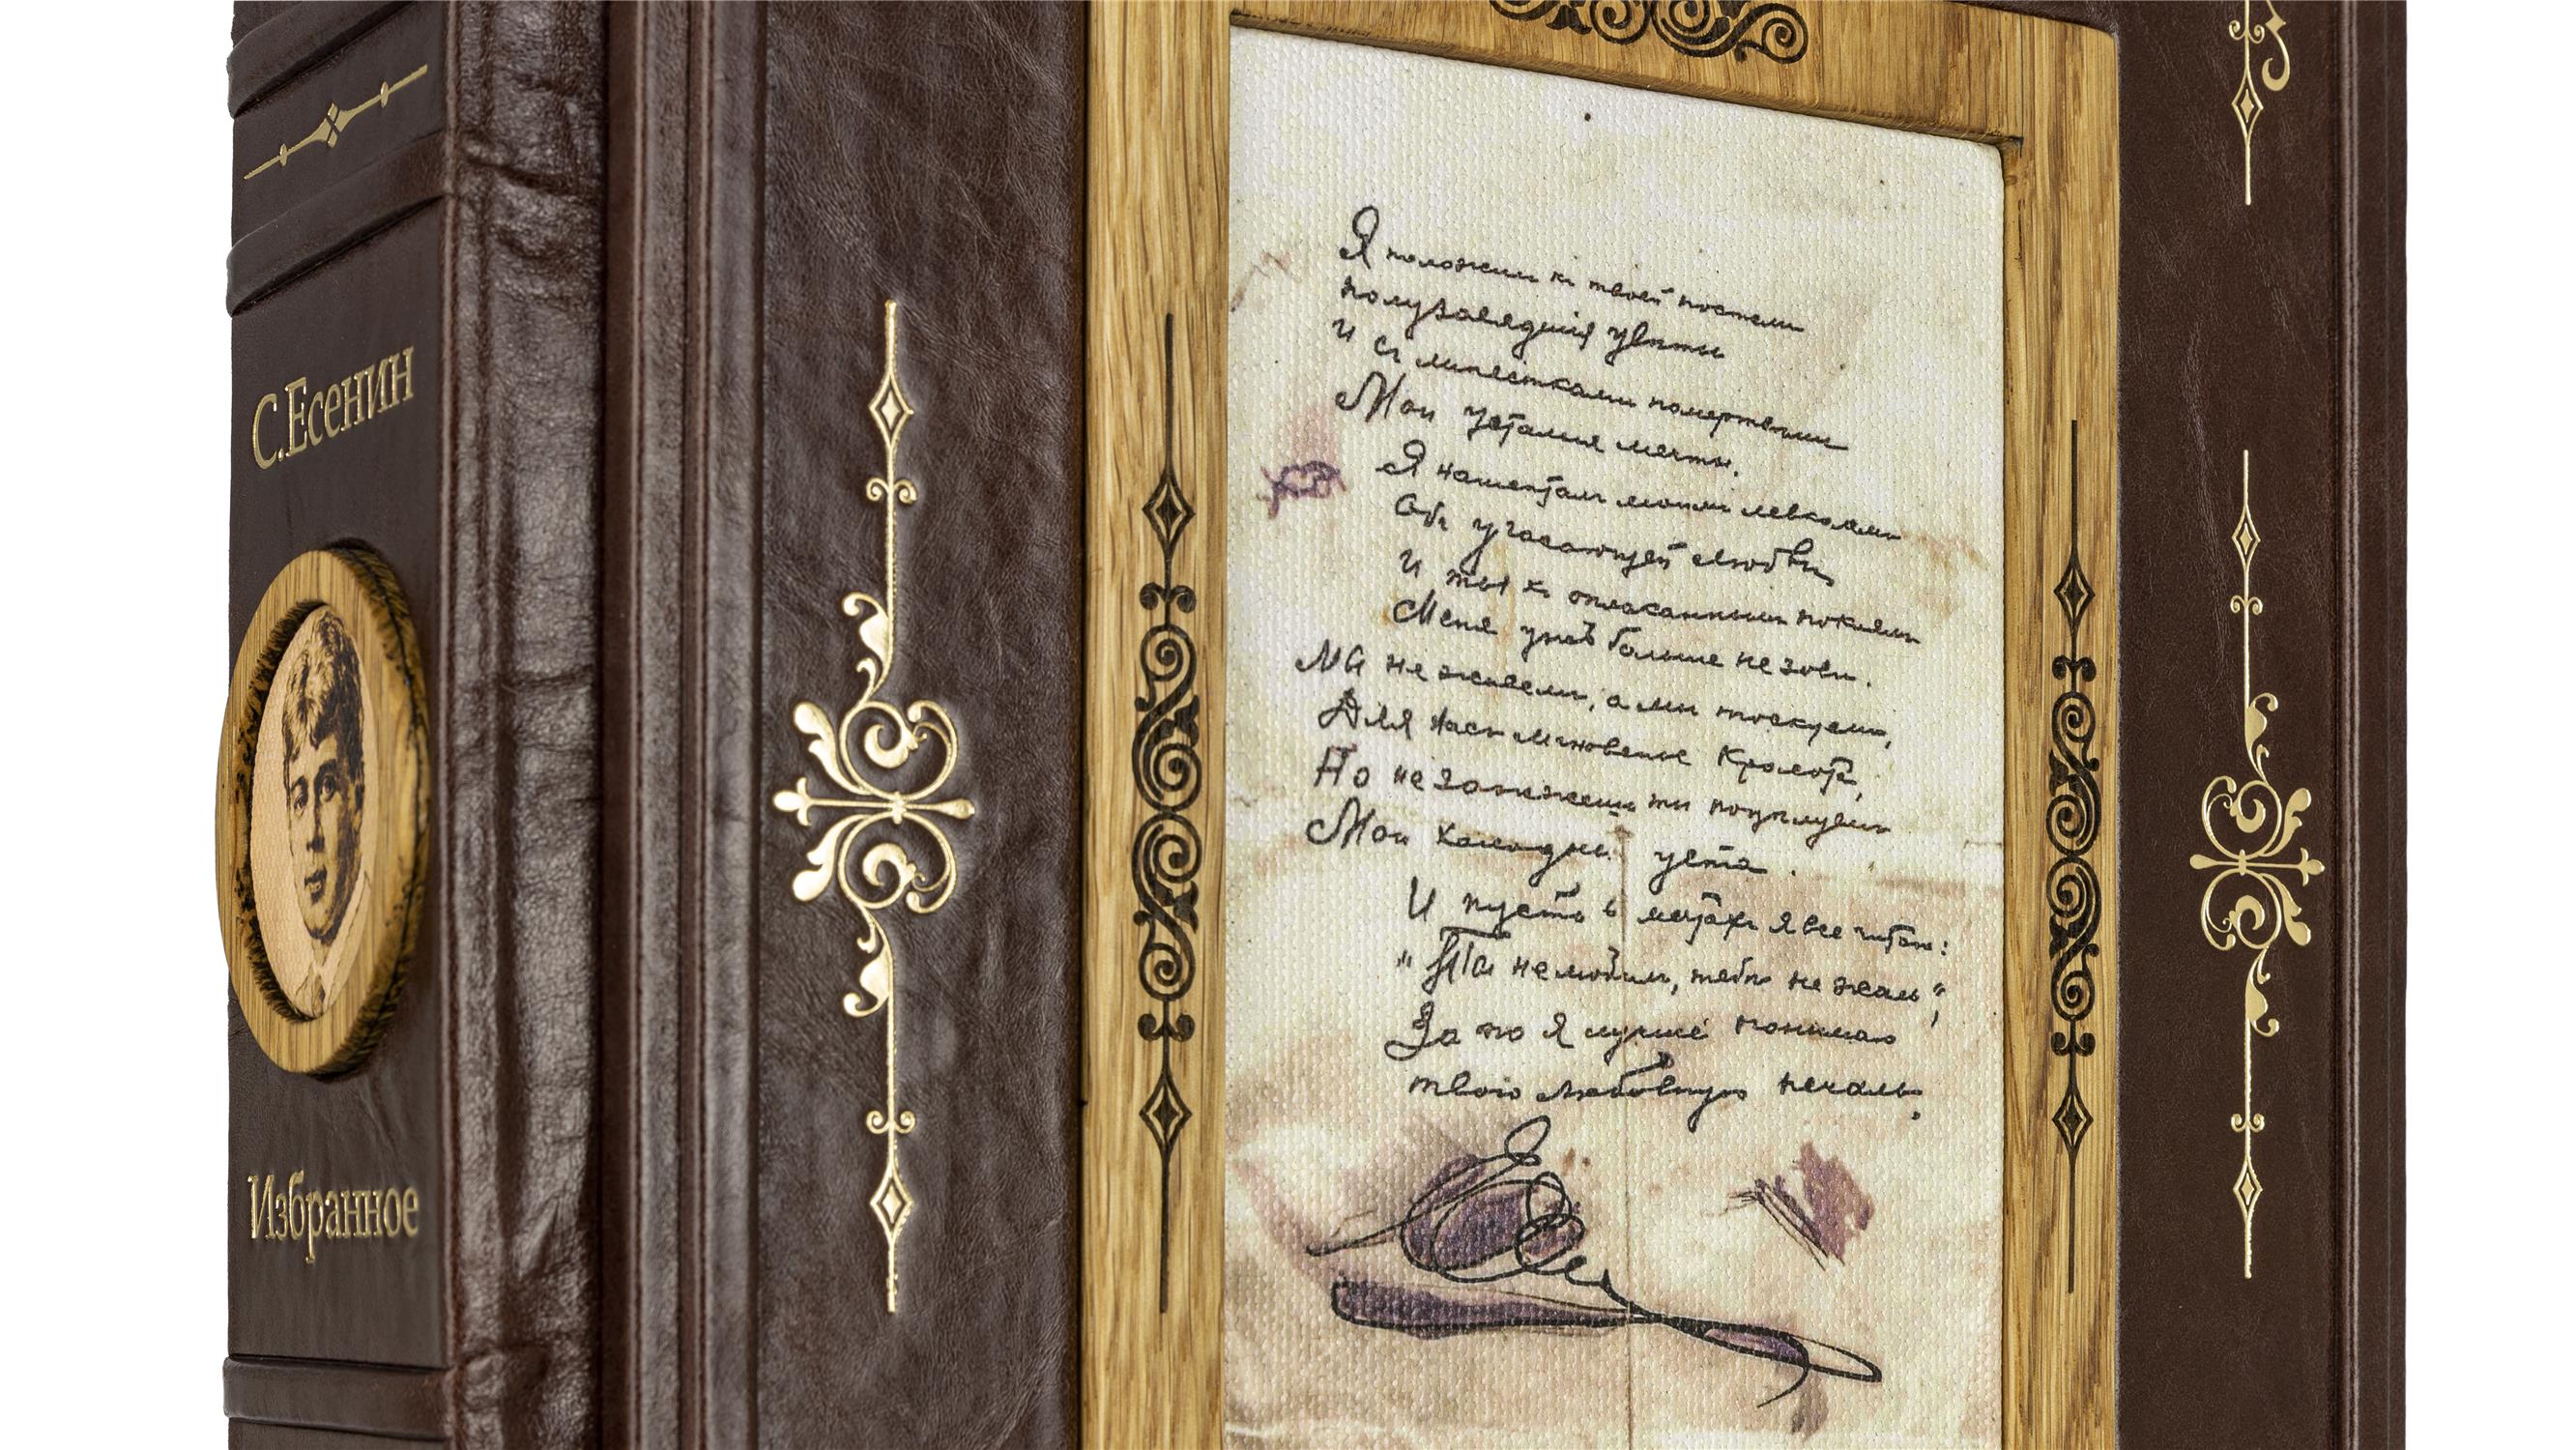 С.Есенин
Избранное
Я положил къ твоей постели
полузавядшія цвѣты
и съ лепестками помертвели
Мои усталыя мечты.
Я нашепталъ моимъ левкоямъ
Объ угасающей любви,
и ты къ оплаканнымъ покоямъ
Меня ужъ больше не зови.
Мы не живемъ, а мы тоскуемъ,
Для насъ мгновенье Красота,
Но не зажжешь ты поцелуемъ
Мои холодныя уста.
И пусть в мечтахъ я все читаю:
"Ты не любилъ, тебѣ не жаль",
За то я лучше понимаю
твою любовную печаль.